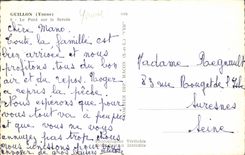 GUILLON (Yonne)
5 - Le Pont sur le Serein
Yonne
Chère Mano.
Toute la famille est
bien arrivée et nous
profitons tous du bon
air et du repos. Roger
a repris la pêche.
Nous espérons que pour
vous tout va à peu près
et que vous ne vous
ennuyez pas trop. Nous
nous
envoyer de gros baisers
Madame Regnault
83 rue Rouget de l'Isle
Suresnes
Seine